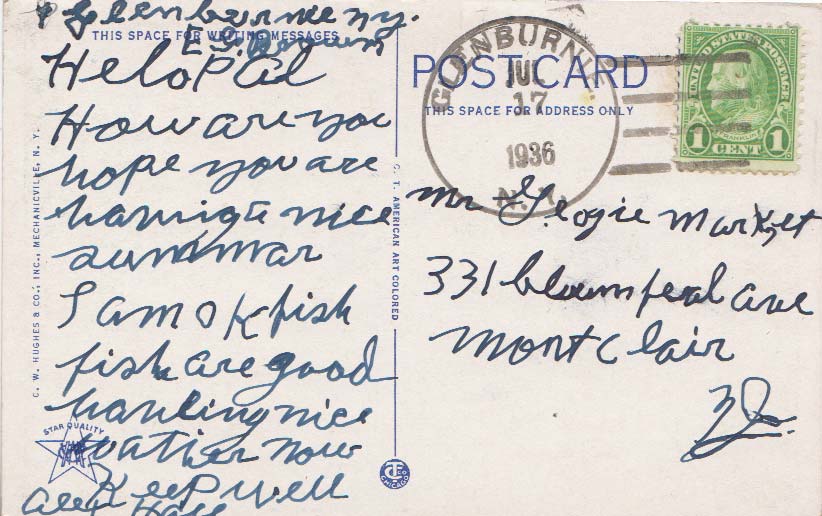 Glenburnie ny.
THIS SPACE FOR WRITING MESSAGES
E S Brown
Helo Pal
How are you
hope you are
havnig a nice
summar
I am ok fish
fish are good
haveing nice
wather now
Keep well
C. W. HUGHES & CO., INC., MECHANICVILLE, N. Y.
STAR QUALITY
C. T. AMERICAN ART COLORED
CHICAGO
POST CARD
THIS SPACE FOR ADDRESS ONLY
GLENBURNIE
JUL
17
1936
N.Y.
UNITED STATES POSTAGE
FRANKLIN
1 CENT 1
Mr Georgie Market
331 bloomfeal ave
Montclair
NJ.